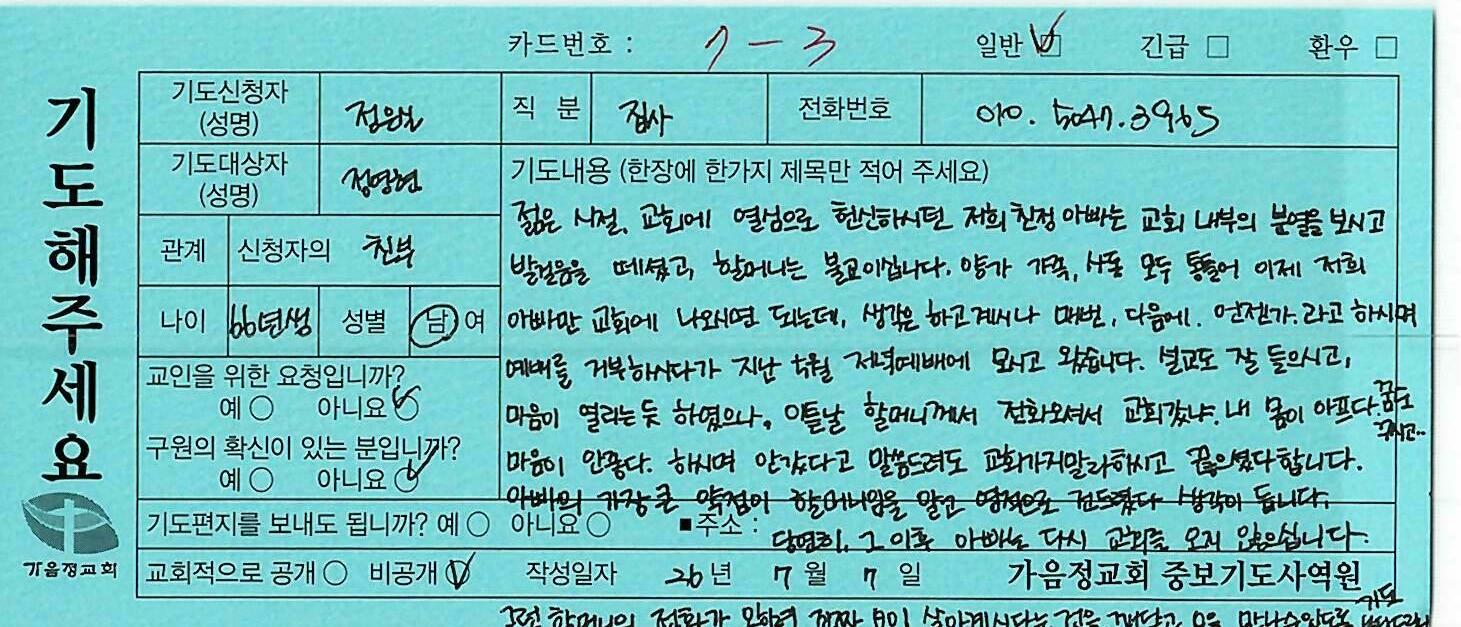 카드번호 : 7-3 일반 ☑ 긴급 □ 환우 □
기도해주세요
기도신청자 (성명) 직 분 집사 전화번호 010. 5047.3965
기도대상자 (성명) 정영현
관계 신청자의 친부
나이 66년생 성별 남 여
교인을 위한 요청입니까?
예 ○ 아니요 ○
구원의 확신이 있는 분입니까?
예 ○ 아니요 ○
기도내용 (한장에 한가지 제목만 적어 주세요)
젊은 시절, 교회에 열심으로 헌신하시던 저희 친정 아빠는 교회 내부의 분열을 보시고
발걸음을 떼셨고, 할머니는 불교이십니다. 양가 가족, 사돈 모두 통틀어 이제 저희
아빠만 교회에 나오시면 되는데, 생각은 하고계시나 매번, 다음에. 언젠가. 라고 하시며
예배를 거부하시다가 지난 5월 저녁예배에 모시고 왔습니다. 설교도 잘 들으시고,
마음이 열리는듯 하였으나, 이튿날 할머니께서 전화오셔서 교회갔냐. 내 몸이 아프다. 꿈도 꾸시고..
마음이 안좋다. 하시며 안갔다고 말씀드려도 교회가지말라하시고 끊으셨다합니다.
아빠의 가장 큰 약점이 할머니임을 알고 영적으로 건드렸다 생각이 듭니다.
당연히, 그 이후 아빠는 다시 교회를 오지 않으십니다.
기도편지를 보내도 됩니까? 예 ○ 아니요 ○ ■주소 :
교회적으로 공개 ○ 비공개 ○ 작성일자 26 년 7 월 7 일 가음정교회 중보기도사역원
가음정교회
할머니의 전화가 살아계시다는 것을 깨닫고 기도